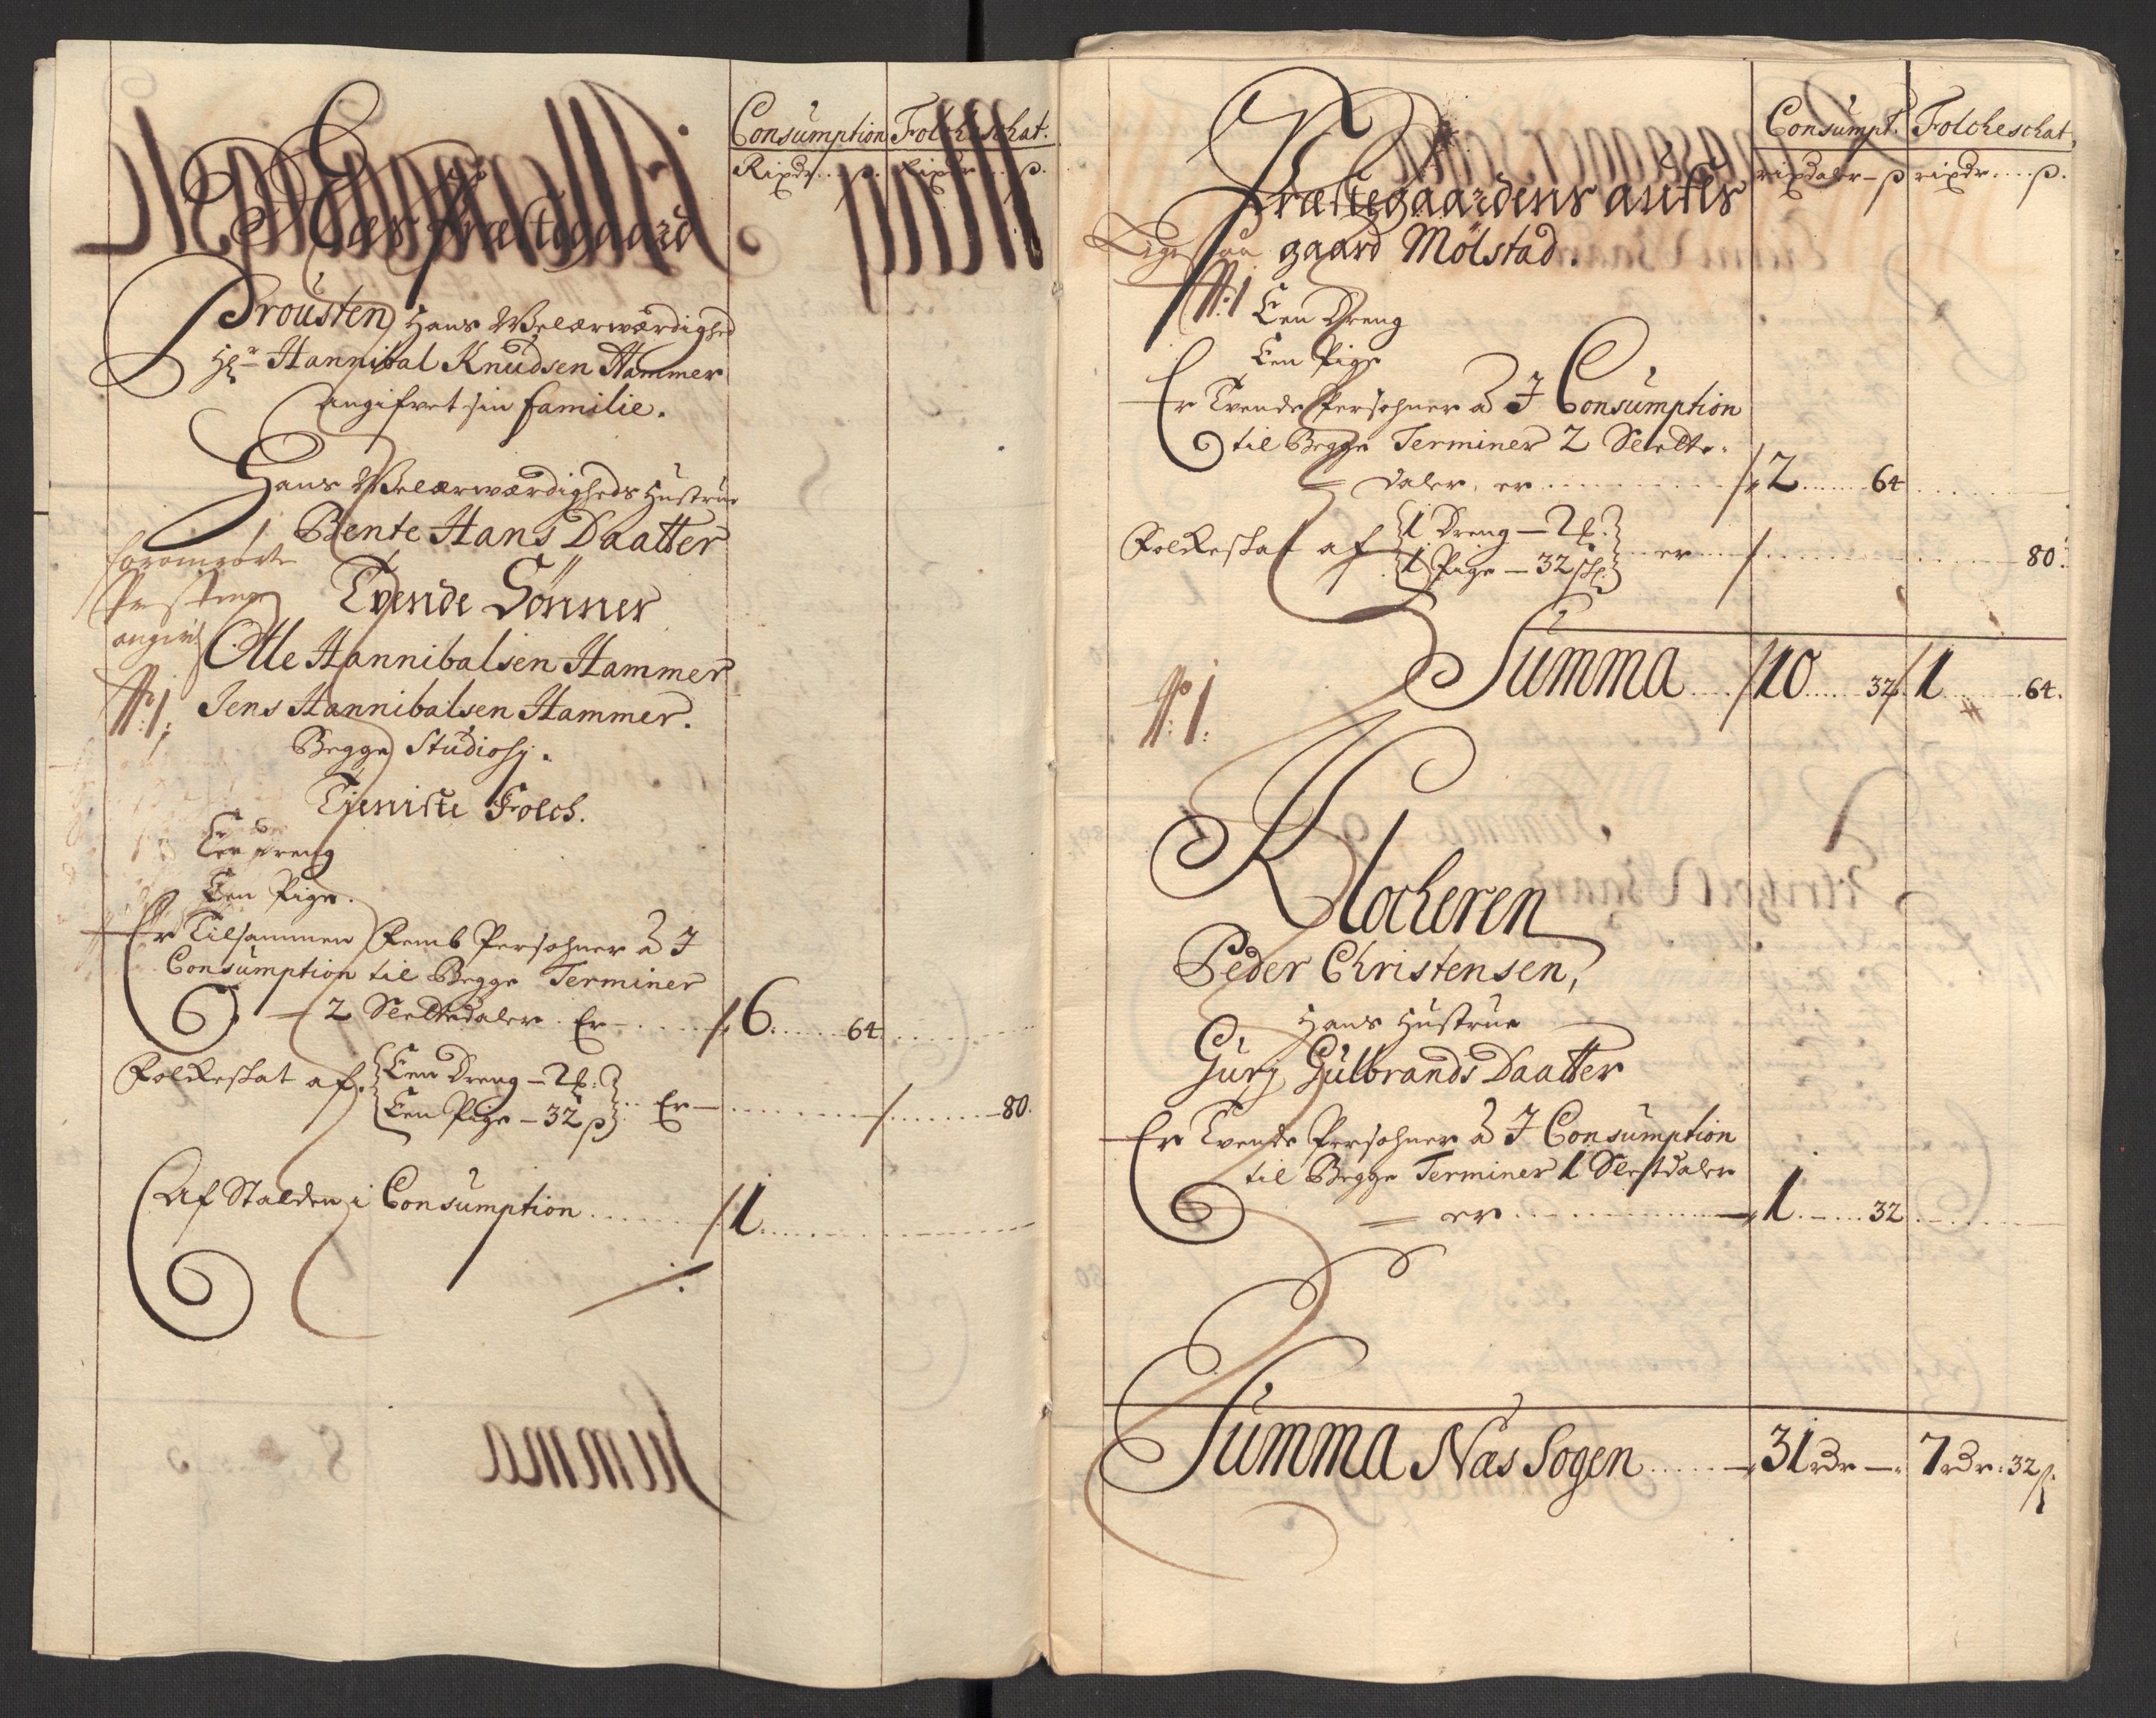 Consumption Folcheschat.
Rixdr. . . ß. Rixdr . . ß.
Næs Præstegaard
Prousten Hans Welærwærdighed
Hr Hannibal Knudsen Hammer
angifvet sin familie.
Hans Welærwærdigheds Hustrue
Bente Hans Daatter
Tvende Sönner
Olle Hannibalsen Hammer
Jens Hannibalsen Hammer.
Begge Studiosy.
Tieniste Folch.
Een Dreng
Een Pige.
Er Tilsammen Femb Persohner à I
Consumption til Begge Terminer
2 Slettedaler Er . . . . 6 . . . 64
Folkeskat af Een Dreng
Een Pige – 32 ß Er . . . . 80.
Af Stalden i Consumption . . . . 1
Summa
Consumpt. Folcheschat,
rixdaler – ß rixdr . . . ß.
Præstegaardens aufls
gaard Mölstad.
Een Dreng
Een Pige
Er Tvende Persohner à I Consumption
til Begge Terminer 2 Slette-
daler, er . . . . 2 . . . 64
Folkeskat af 1 Dreng
1 Pige – 32 er . . . . 80.
Summa . . . 10 . . . 32 1 . . . 64.
Klocheren
Peder Christensen,
Hans Hustrue
Gurj Gulbrands Daatter
Er Tvende Persohner à I Consumption
til Begge Terminer 1 Sletdaler
er . . . . 1 . . . 32
Summa Næs Sogen . . . 31 rdr – 7 rdr: 32 ß.